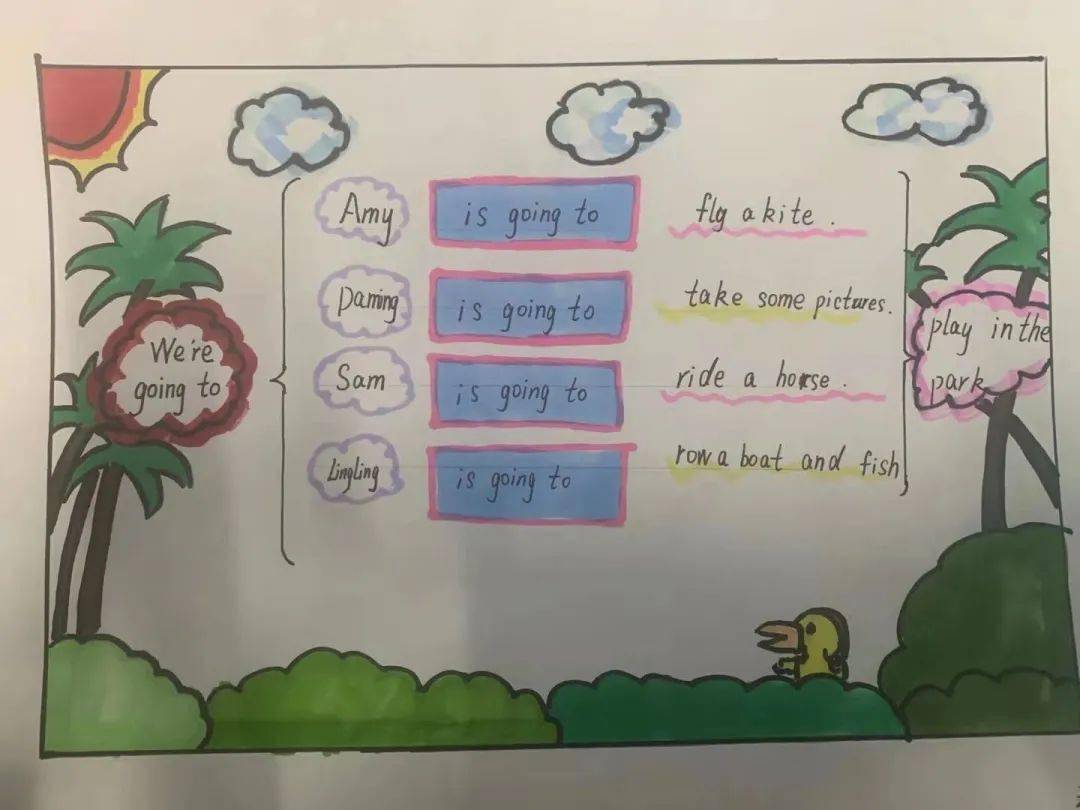 Amy is going to fly a kite.
Daming is going to take some pictures.
We're
going to
play in the
park
Sam is going to ride a horse.
Lingling is going to row a boat and fish